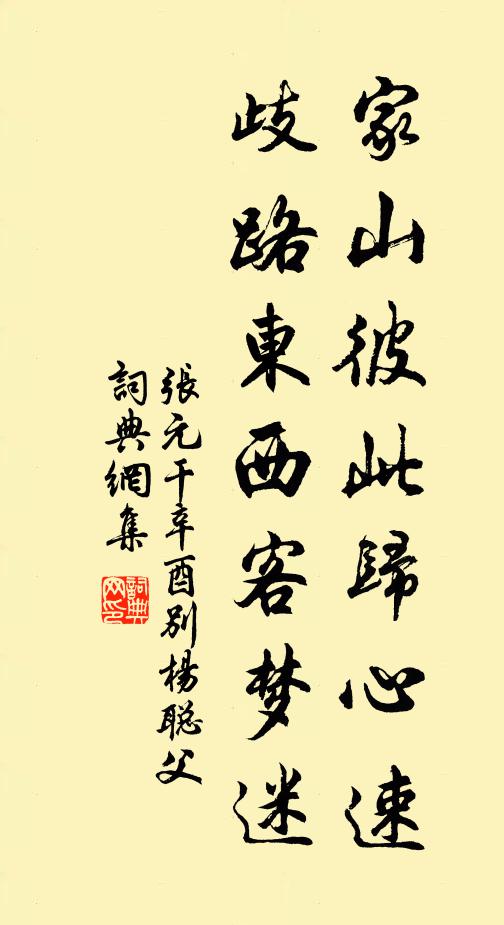 家山彼此歸心速
歧路東西客梦迷
張元干辛酉別楊聡父
詞典網集
詞典网印